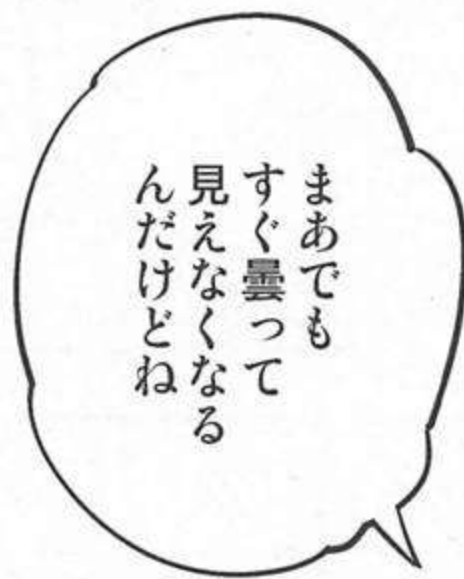 まあでも
すぐ曇って
見えなくなる
んだけどね